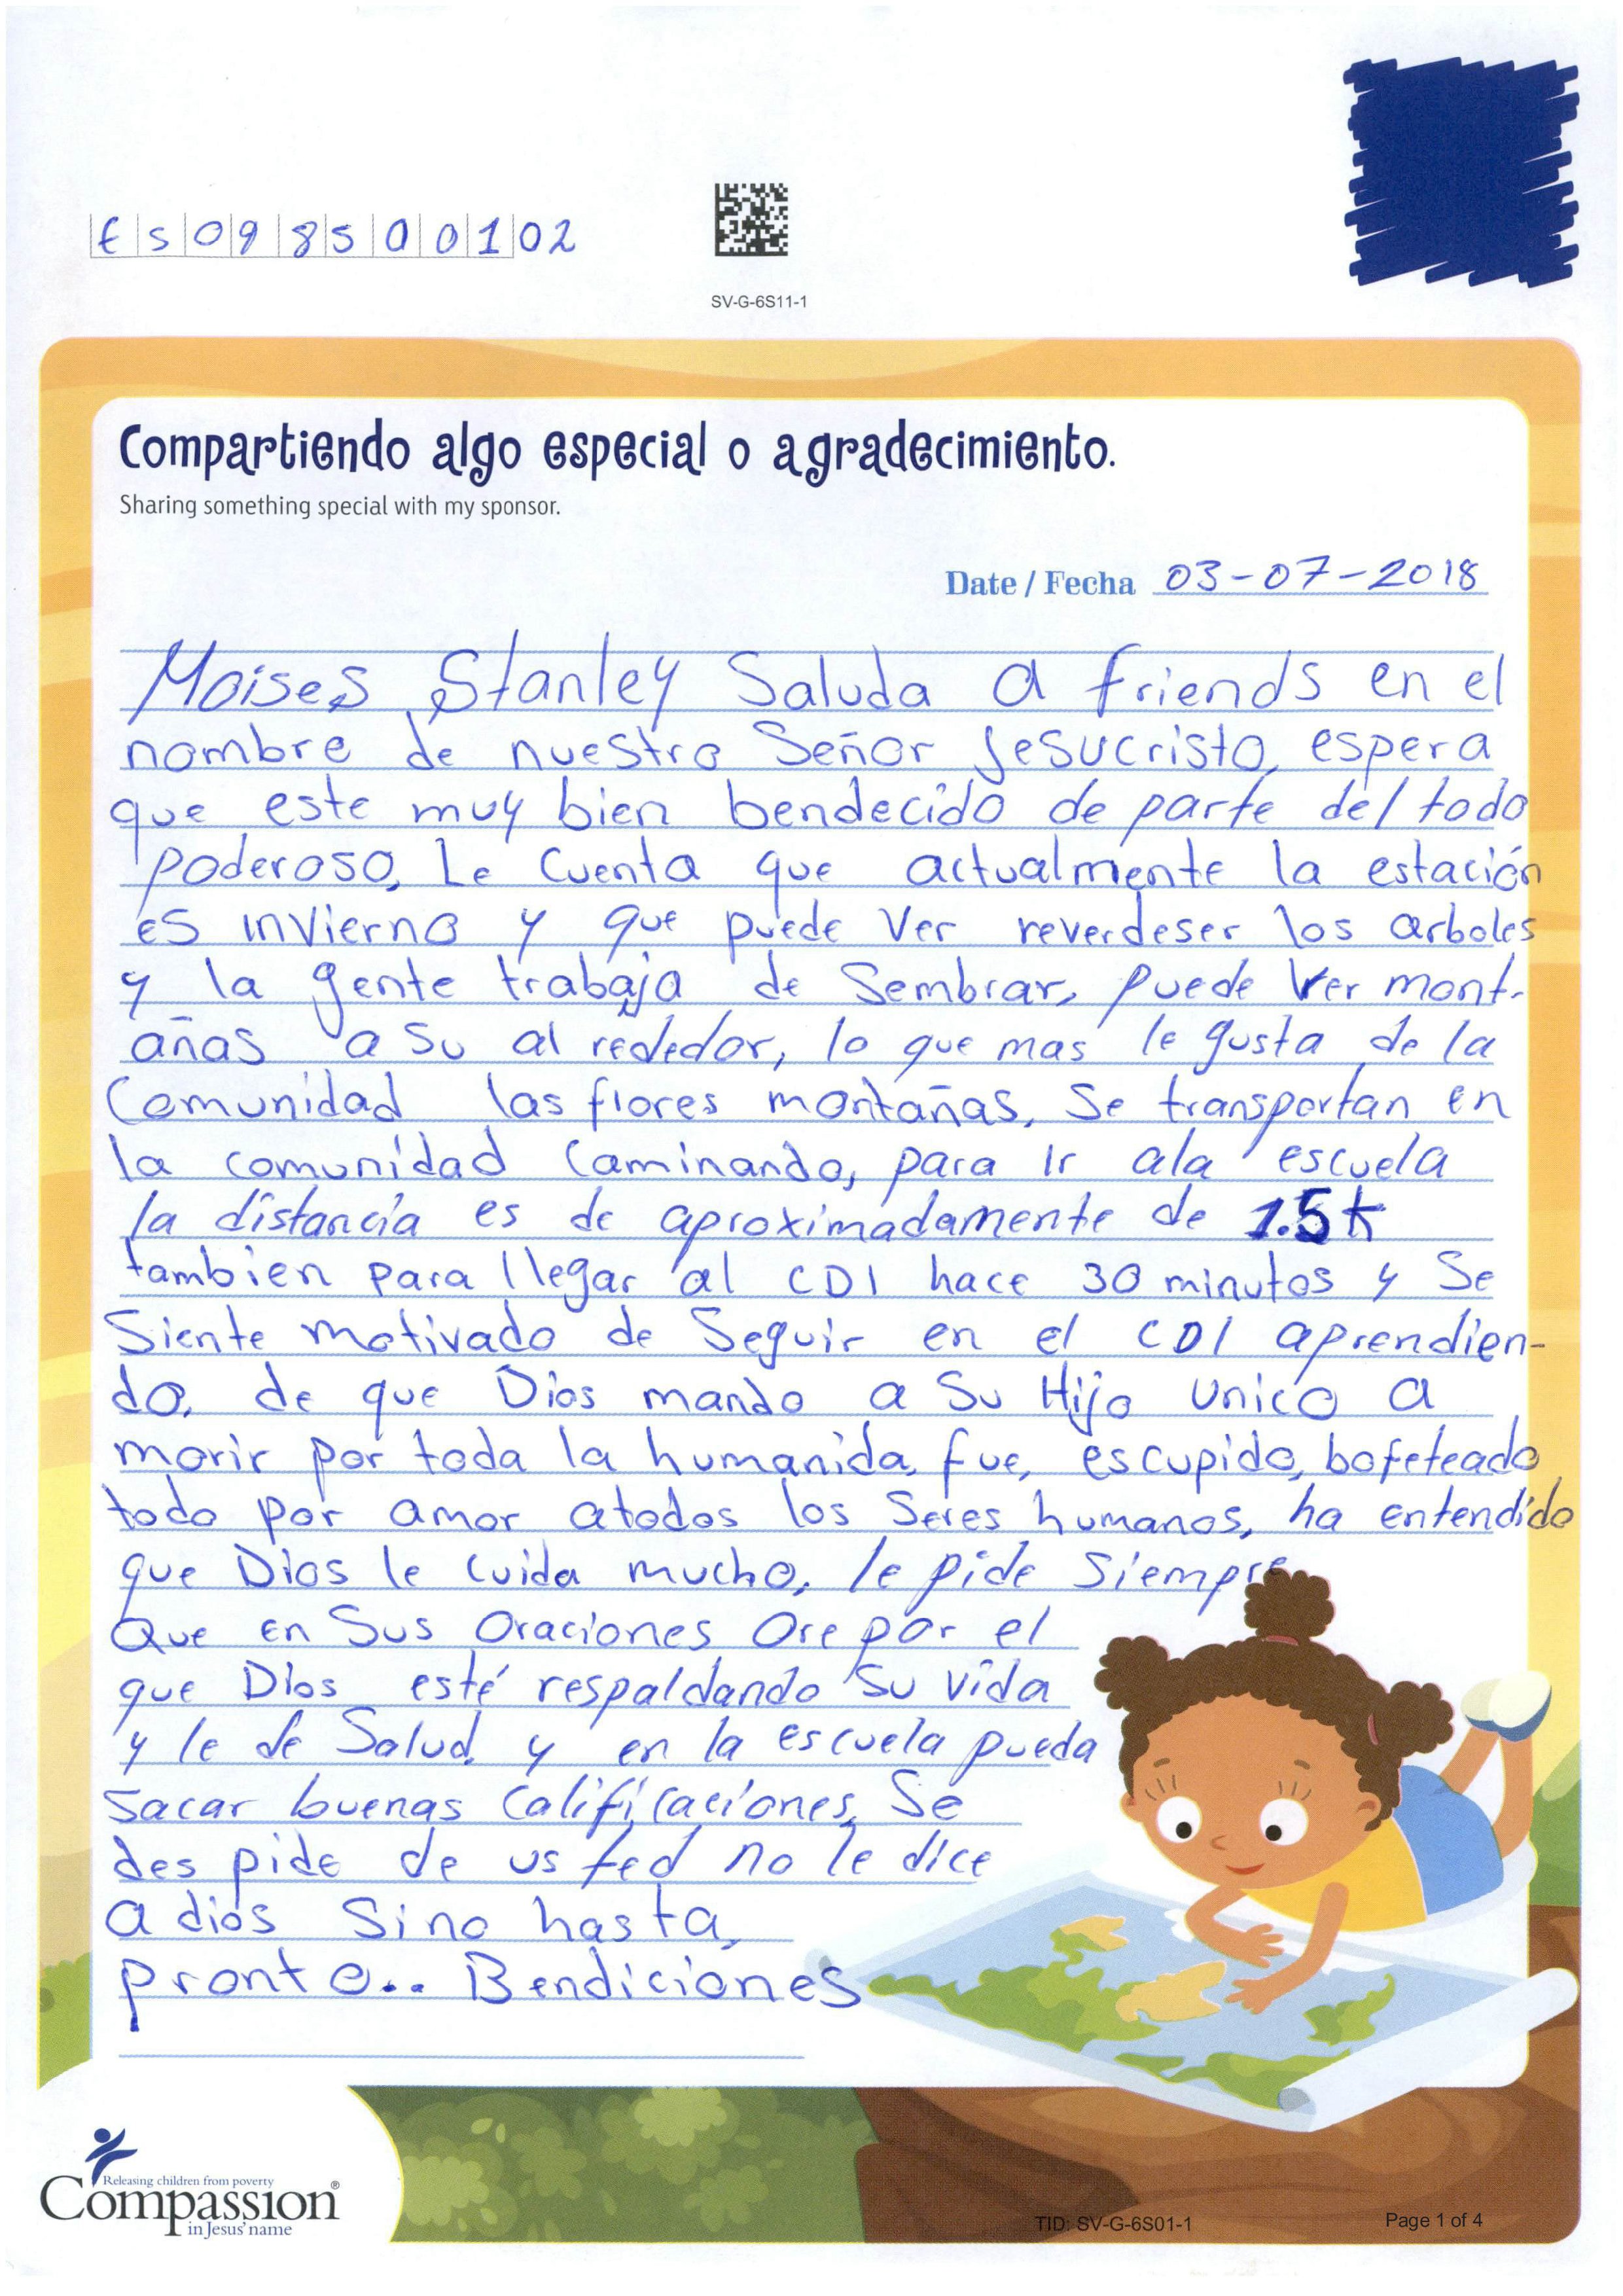 ES09850010 2
SV-G-6S11-1
Compartiendo algo especial o agradecimiento.
Sharing something special with my sponsor.
Date / Fecha 03-07-2018
Moises Stanley Saluda a friends en el
nombre de nuestro Señor Jesucristo, espera
que este muy bien bendecido de parte del todo
poderoso, Le Cuenta que actualmente la estación
es invierno y que puede ver reverdeser los arboles
y la gente trabaja de Sembrar, puede ver mont-
añas a su al rededor, lo que mas le gusta de la
Comunidad las flores montañas, Se transportan en
la comunidad Caminando, para ir ala escuela
la distancia es de aproximadamente de 1.5k
tambien para llegar al CDI hace 30 minutos y Se
Siente motivado de Seguir en el CDI aprendien-
do, de que Dios mando a Su Hijo unico a
morir por toda la humanida, fue, escupido, bofeteado
todo por amor atodos los Seres humanos, ha entendido
que Dios le cuida mucho, le pide siempre
Que en Sus Oraciones Ore por el
que Dios esté respaldando Su vida
y le de Salud, y en la escuela pueda
sacar buenas Calificaciones, Se
des pide de usted no le dice
a dios Sino hasta,
pronto... Bendiciones
Releasing children from poverty
Compassion®
in Jesus' name
TID: SV-G-6S01-1
Page 1 of 4